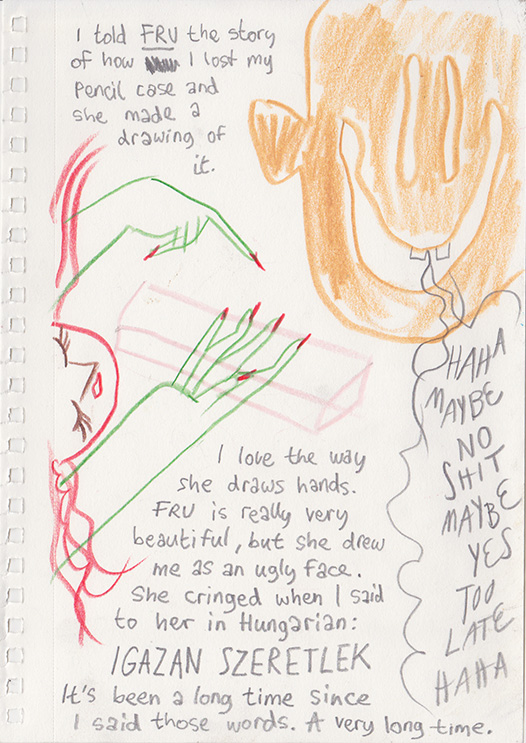 I told FRU the story
of how I lost my
pencil case and
she made a
drawing of
it.
HAHA
MAYBE
NO
SHIT
MAYBE
YES
TOO
LATE
HAHA
I love the way
she draws hands.
FRU is really very
beautiful, but she drew
me as an ugly face.
She cringed when I said
to her in Hungarian:
IGAZAN SZERETLEK
It's been a long time since
I said those words. A very long time.